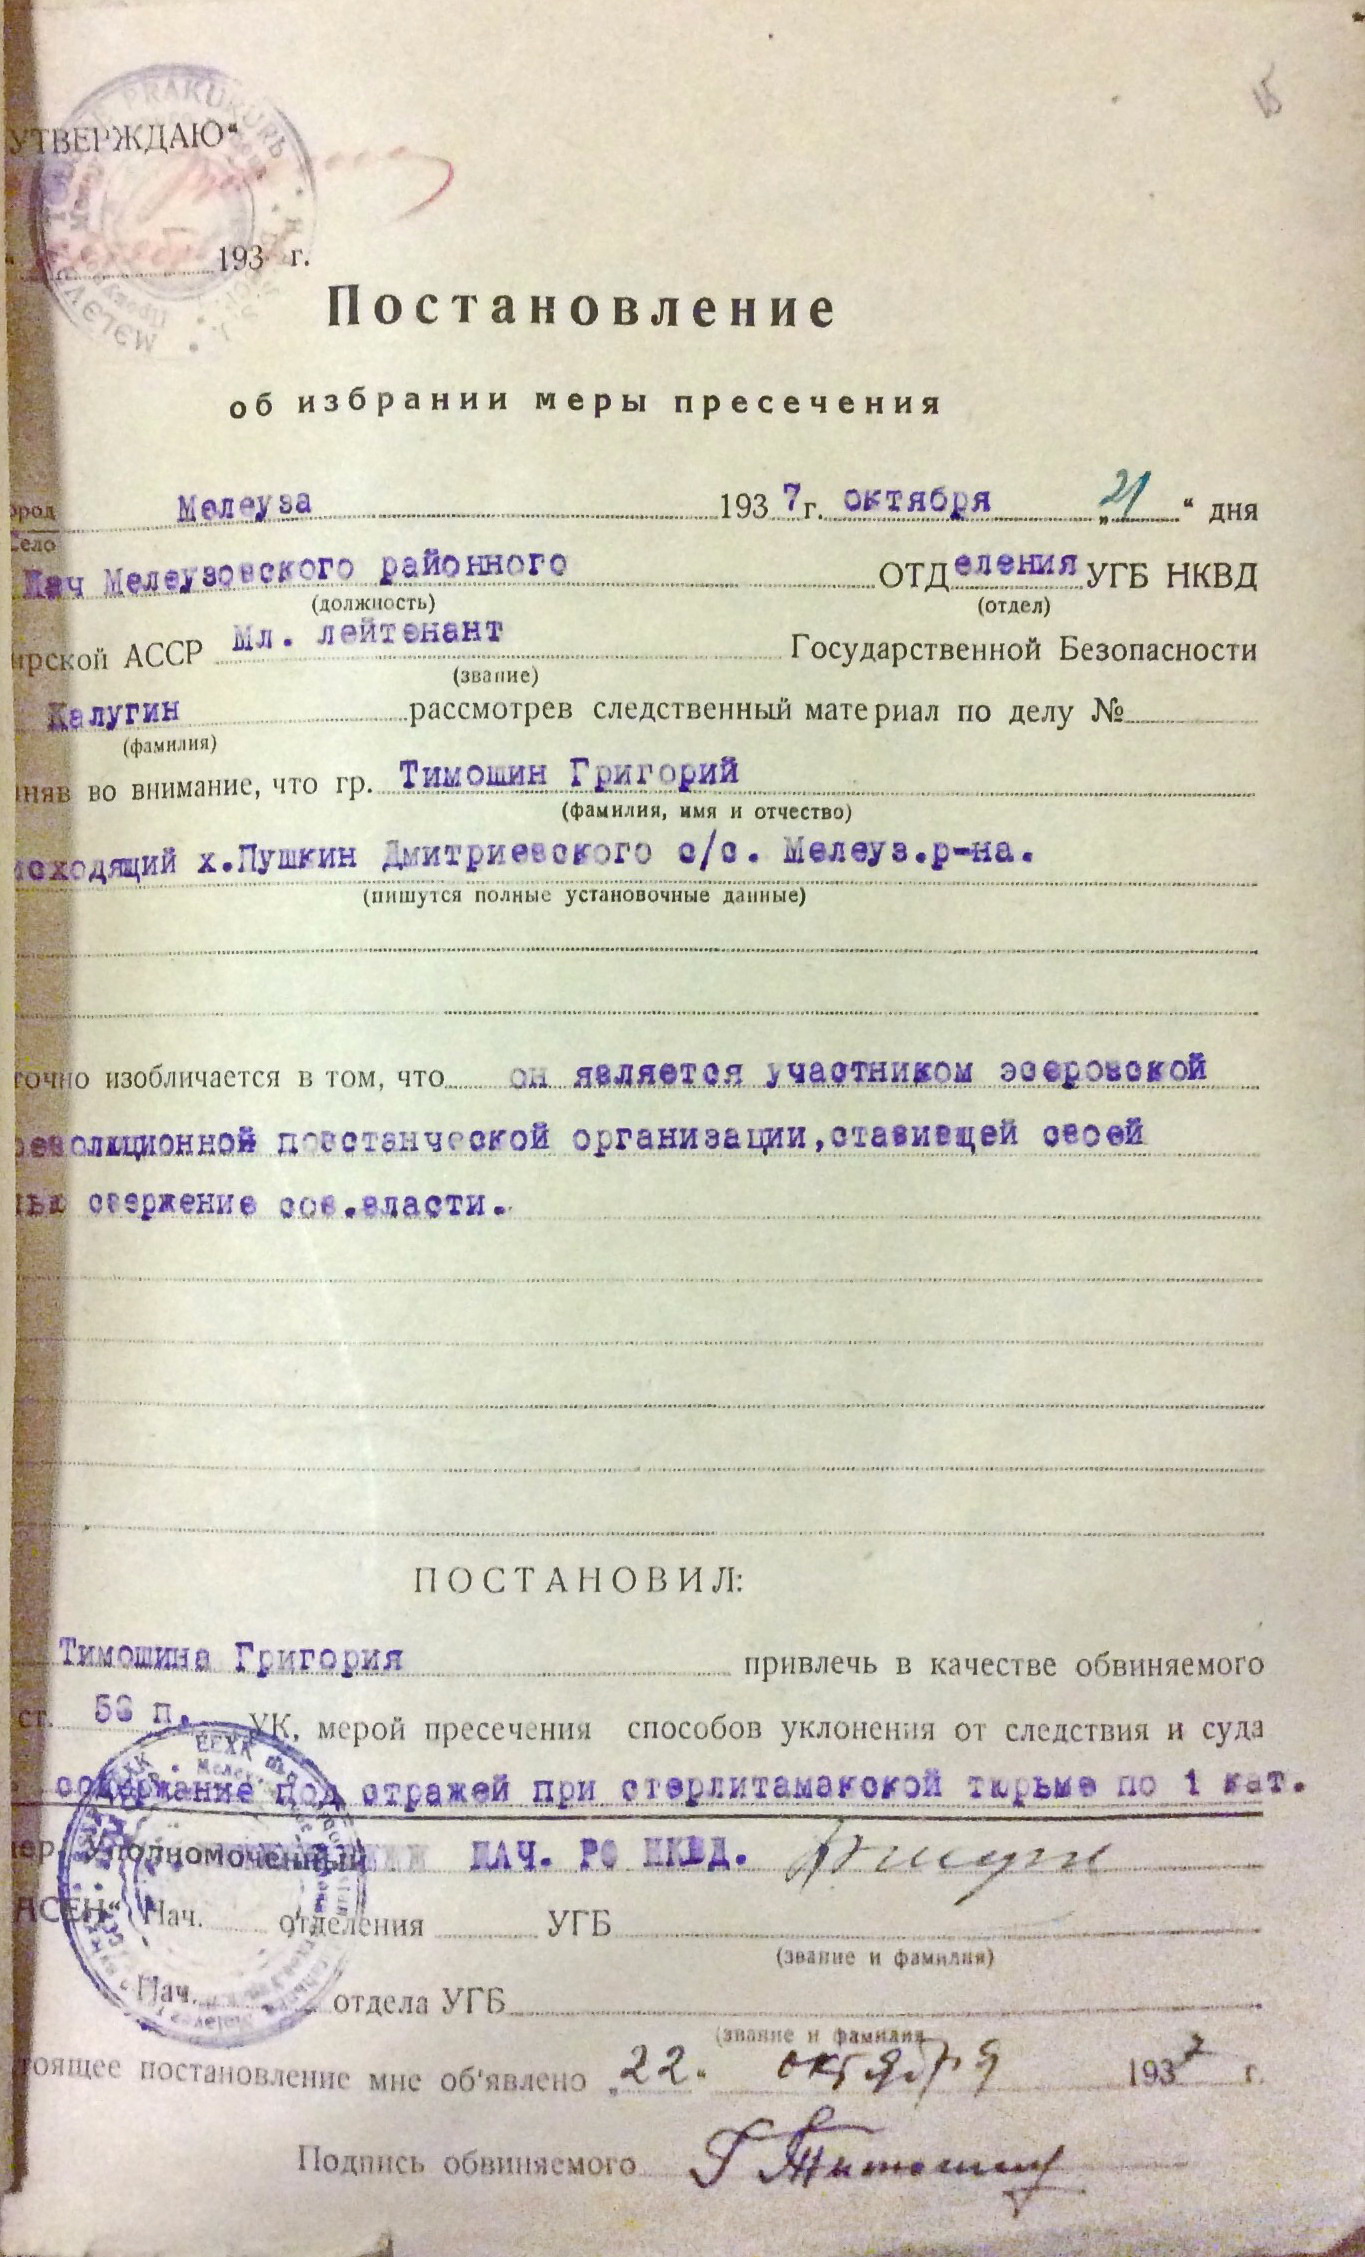 15
УТВЕРЖДАЮ"
193 г.
Постановление
об избрании меры пресечения
ород Мелеуза 1937г. октября „21" дня
Село
Нач Мелеузовского районного ОТДеления УГБ НКВД
(должность) (отдел)
ирской АССР Мл. лейтенант Государственной Безопасности
(звание)
Калугин рассмотрев следственный материал по делу №
(фамилия)
няв во внимание, что гр. Тимошин Григорий
(фамилия, имя и отчество)
исходящий х.Пушкин Дмитриевского с/с. Мелеуз.р-на.
(пишутся полные установочные данные)
точно изобличается в том, что он является участником эсеровской
революционной повстанческой организации,ставившей своей
лью свержение сов.власти.
ПОСТАНОВИЛ:
Тимошина Григория привлечь в качестве обвиняемого
ст. 58 п. УК, мерой пресечения способов уклонения от следствия и суда
содержание под стражей при стерлитамакской тюрьме по 1 кат.
пер. Уполномоченный НАЧ. РО НКВД.
АСЕН" Нач. отделения УГБ
(звание и фамилия)
Нач. отдела УГБ
(звание и фамилия
тоящее постановление мне об'явлено „22" октября 1937 г.
Подпись обвиняемого Г Тимошин